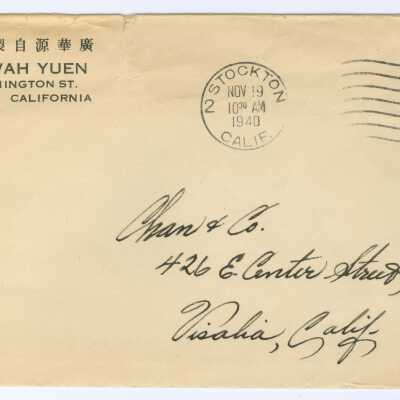 廣華源自製
WAH YUEN
HINGTON ST.
CALIFORNIA
STOCKTON
2
NOV 19
10 30 AM
1940
CALIF.
Chan & Co.
426 E. Center Street,
Visalia, Calif.